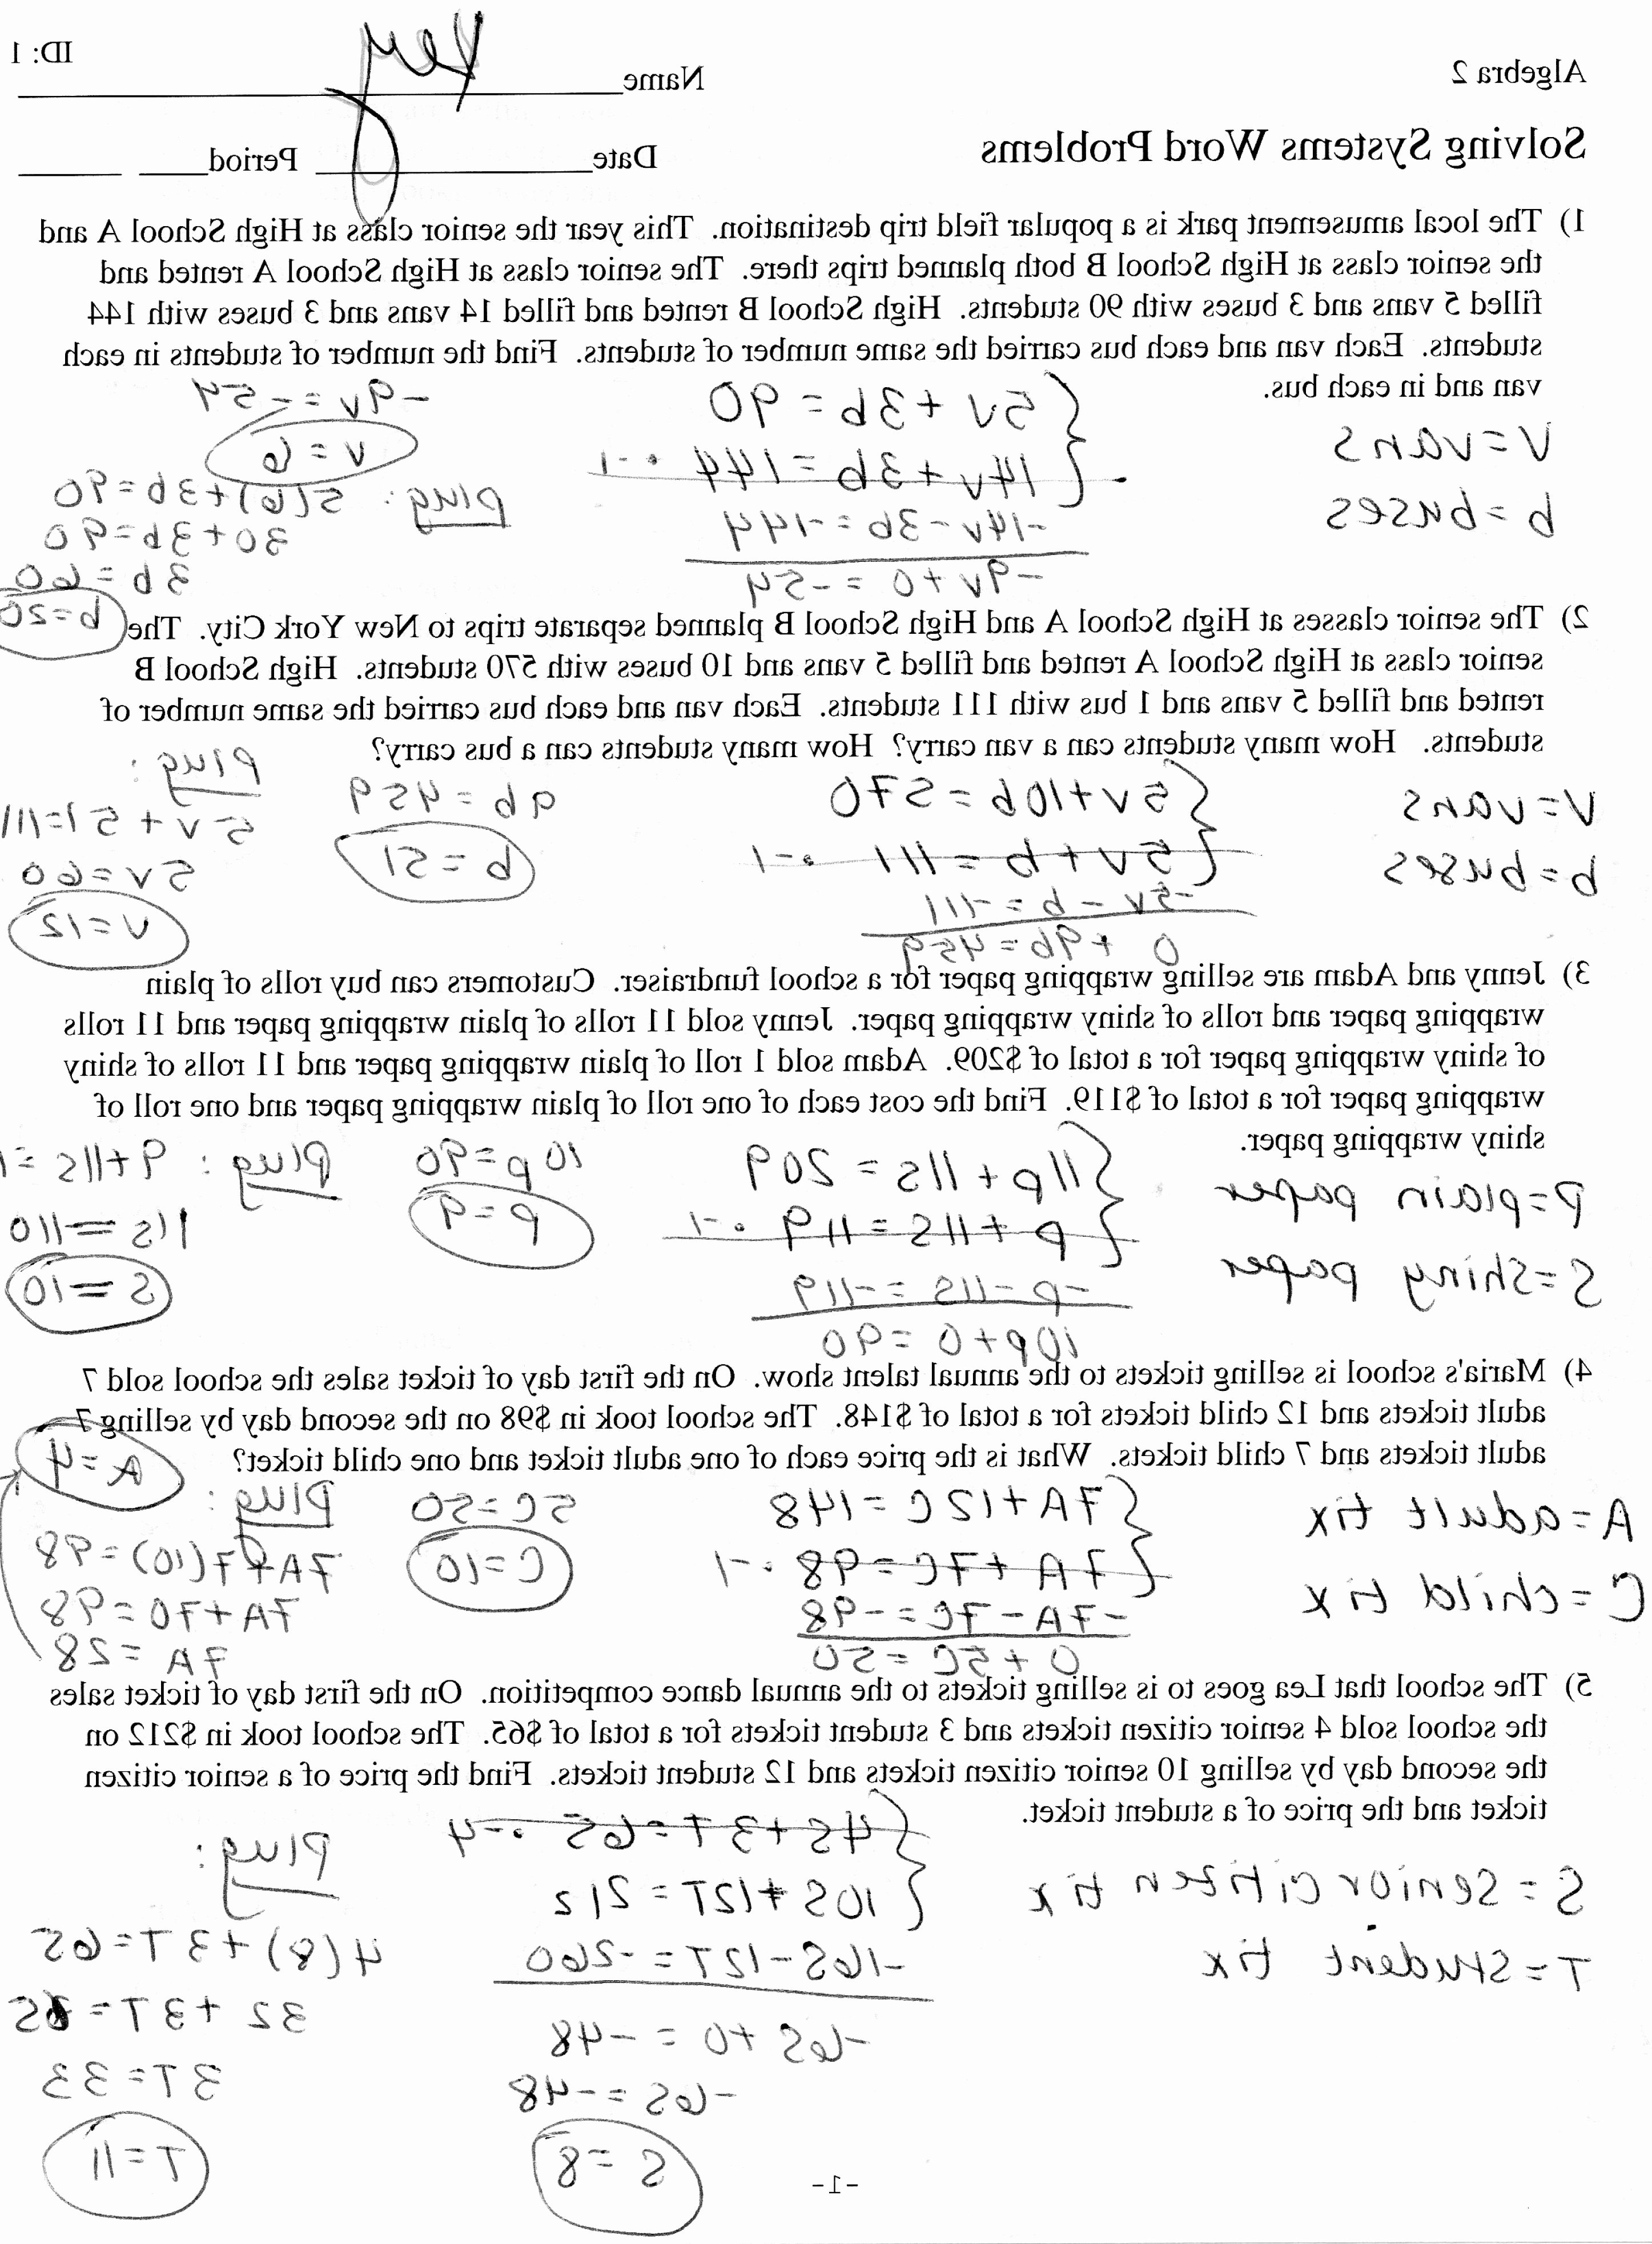 Algebra 2
Name Key
ID: 1
Solving Systems Word Problems
Date Period
1) The local amusement park is a popular field trip destination. This year the senior class at High School A and
the senior class at High School B both planned trips there. The senior class at High School A rented and
filled 5 vans and 3 buses with 90 students. High School B rented and filled 14 vans and 3 buses with 144
students. Each van and each bus carried the same number of students. Find the number of students in each
van and in each bus.
V=vans
b=buses
5v+3b=90
14v+3b=144 · -1
-14v-3b=-144
-9v+0=-54
-9v=-54
v=6
plug: 5(6)+3b=90
30+3b=90
3b=60
b=20
2) The senior classes at High School A and High School B planned separate trips to New York City. The
senior class at High School A rented and filled 5 vans and 10 buses with 570 students. High School B
rented and filled 5 vans and 1 bus with 111 students. Each van and each bus carried the same number of
students. How many students can a van carry? How many students can a bus carry?
V=vans
b=buses
5v+10b=570
5v+b=111 · -1
-5v-b=-111
0+9b=459
9b=459
b=51
plug:
5v+51=111
5v=60
v=12
3) Jenny and Adam are selling wrapping paper for a school fundraiser. Customers can buy rolls of plain
wrapping paper and rolls of shiny wrapping paper. Jenny sold 11 rolls of plain wrapping paper and 11 rolls
of shiny wrapping paper for a total of $209. Adam sold 1 roll of plain wrapping paper and 11 rolls of shiny
wrapping paper for a total of $119. Find the cost each of one roll of plain wrapping paper and one roll of
shiny wrapping paper.
P=plain paper
S=shiny paper
11p+11s=209
p+11s=119 · -1
-p-11s=-119
10p+0=90
10p=90
p=9
plug: 9+11s=1
11s=110
s=10
4) Maria's school is selling tickets to the annual talent show. On the first day of ticket sales the school sold 7
adult tickets and 12 child tickets for a total of $148. The school took in $98 on the second day by selling 7
adult tickets and 7 child tickets. What is the price each of one adult ticket and one child ticket?
A=adult tix
C=child tix
7A+12C=148
7A+7C=98 · -1
-7A-7C=-98
0+5C=50
5C=50
C=10
plug:
7A+7(10)=98
7A+70=98
7A=28
A=4
5) The school that Lea goes to is selling tickets to the annual dance competition. On the first day of ticket sales
the school sold 4 senior citizen tickets and 3 student tickets for a total of $65. The school took in $212 on
the second day by selling 10 senior citizen tickets and 12 student tickets. Find the price of a senior citizen
ticket and the price of a student ticket.
S=senior citizen tix
T=student tix
4S+3T=65 · -4
10S+12T=212
-16S-12T=-260
-6S+0=-48
-6S=-48
S=8
plug:
4(8)+3T=65
32+3T=65
3T=33
T=11
-1-